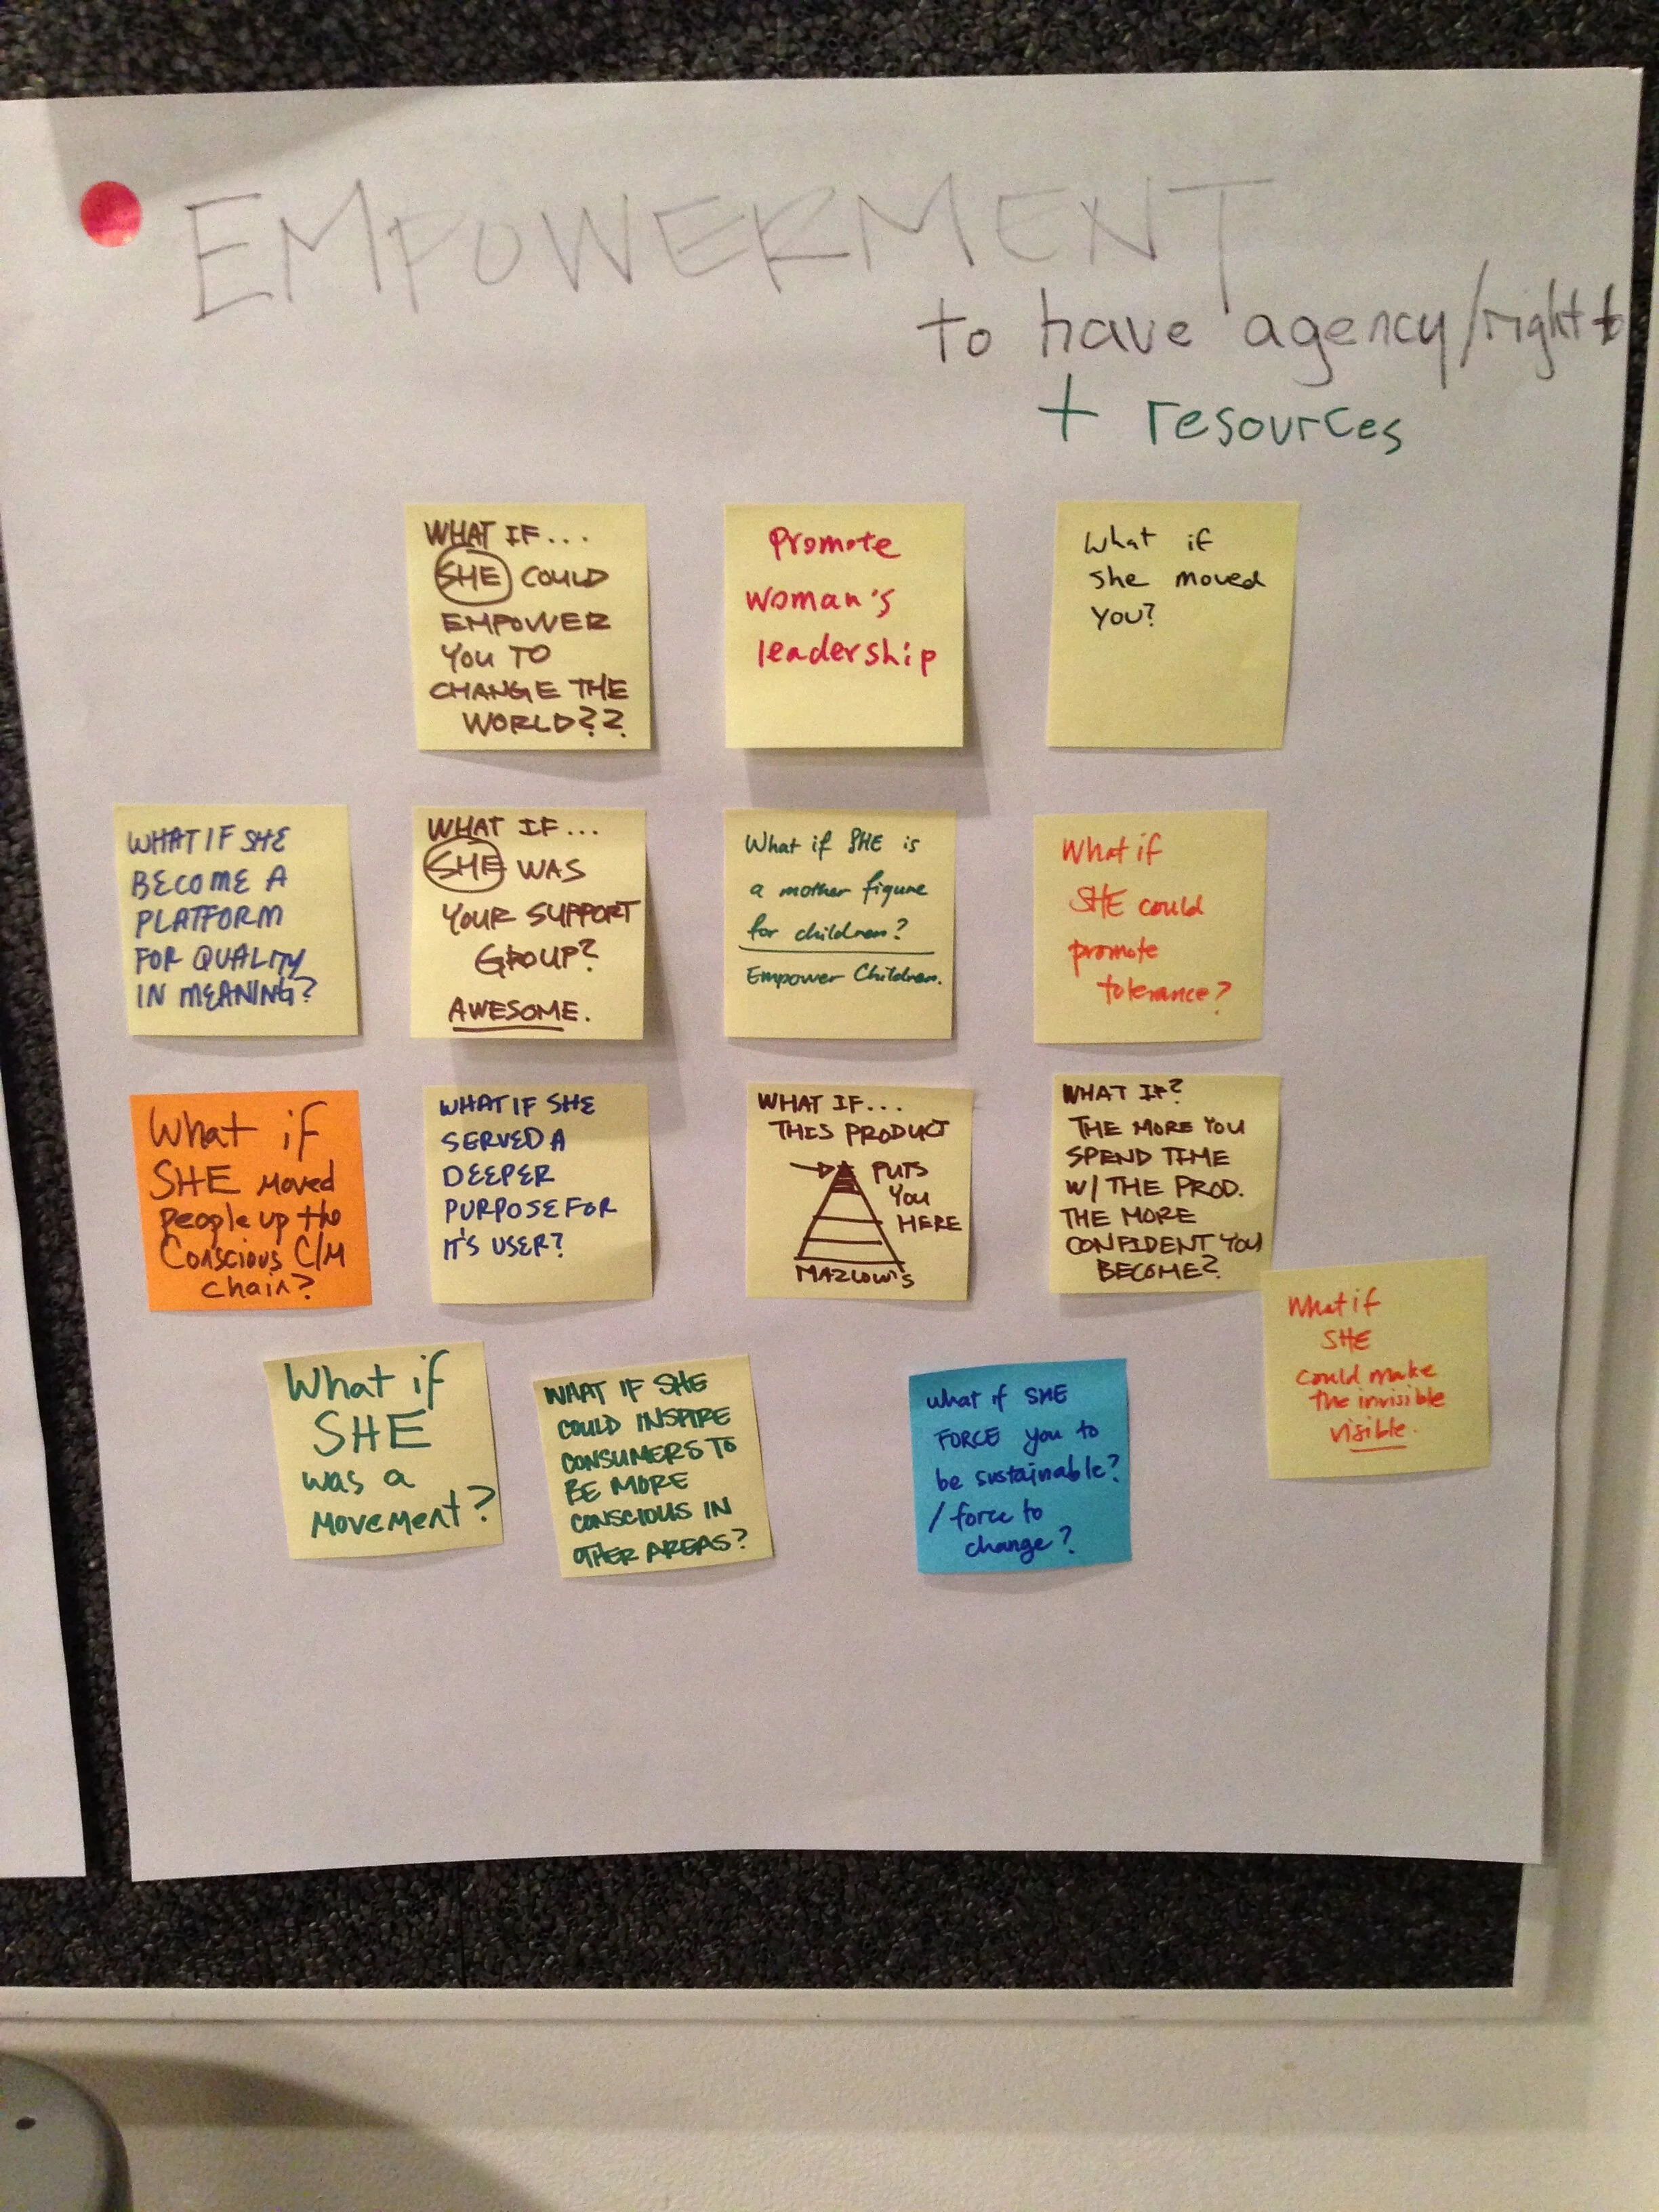 EMPOWERMENT
to have agency/right to
+ resources
WHAT IF...
SHE COULD
EMPOWER
YOU TO
CHANGE THE
WORLD??
Promote
woman's
leadership
What if
she moved
you?
WHAT IF SHE
BECOME A
PLATFORM
FOR QUALITY
IN MEANING?
WHAT IF...
SHE WAS
YOUR SUPPORT
GROUP?
AWESOME.
What if SHE is
a mother figure
for children?
Empower Children.
What if
SHE could
promote
tolerance?
What if
SHE moved
people up the
Conscious C/M
chain?
WHAT IF SHE
SERVED A
DEEPER
PURPOSE FOR
IT'S USER?
WHAT IF...
THIS PRODUCT
PUTS
YOU
HERE
MAZLOW'S
WHAT IF?
THE MORE YOU
SPEND TIME
W/ THE PROD.
THE MORE
CONFIDENT YOU
BECOME?
What if
SHE
could make
the invisible
visible.
What if
SHE
was a
movement?
WHAT IF SHE
COULD INSPIRE
CONSUMERS TO
BE MORE
CONSCIOUS IN
OTHER AREAS?
what if SHE
FORCE you to
be sustainable?
/ force to
change?